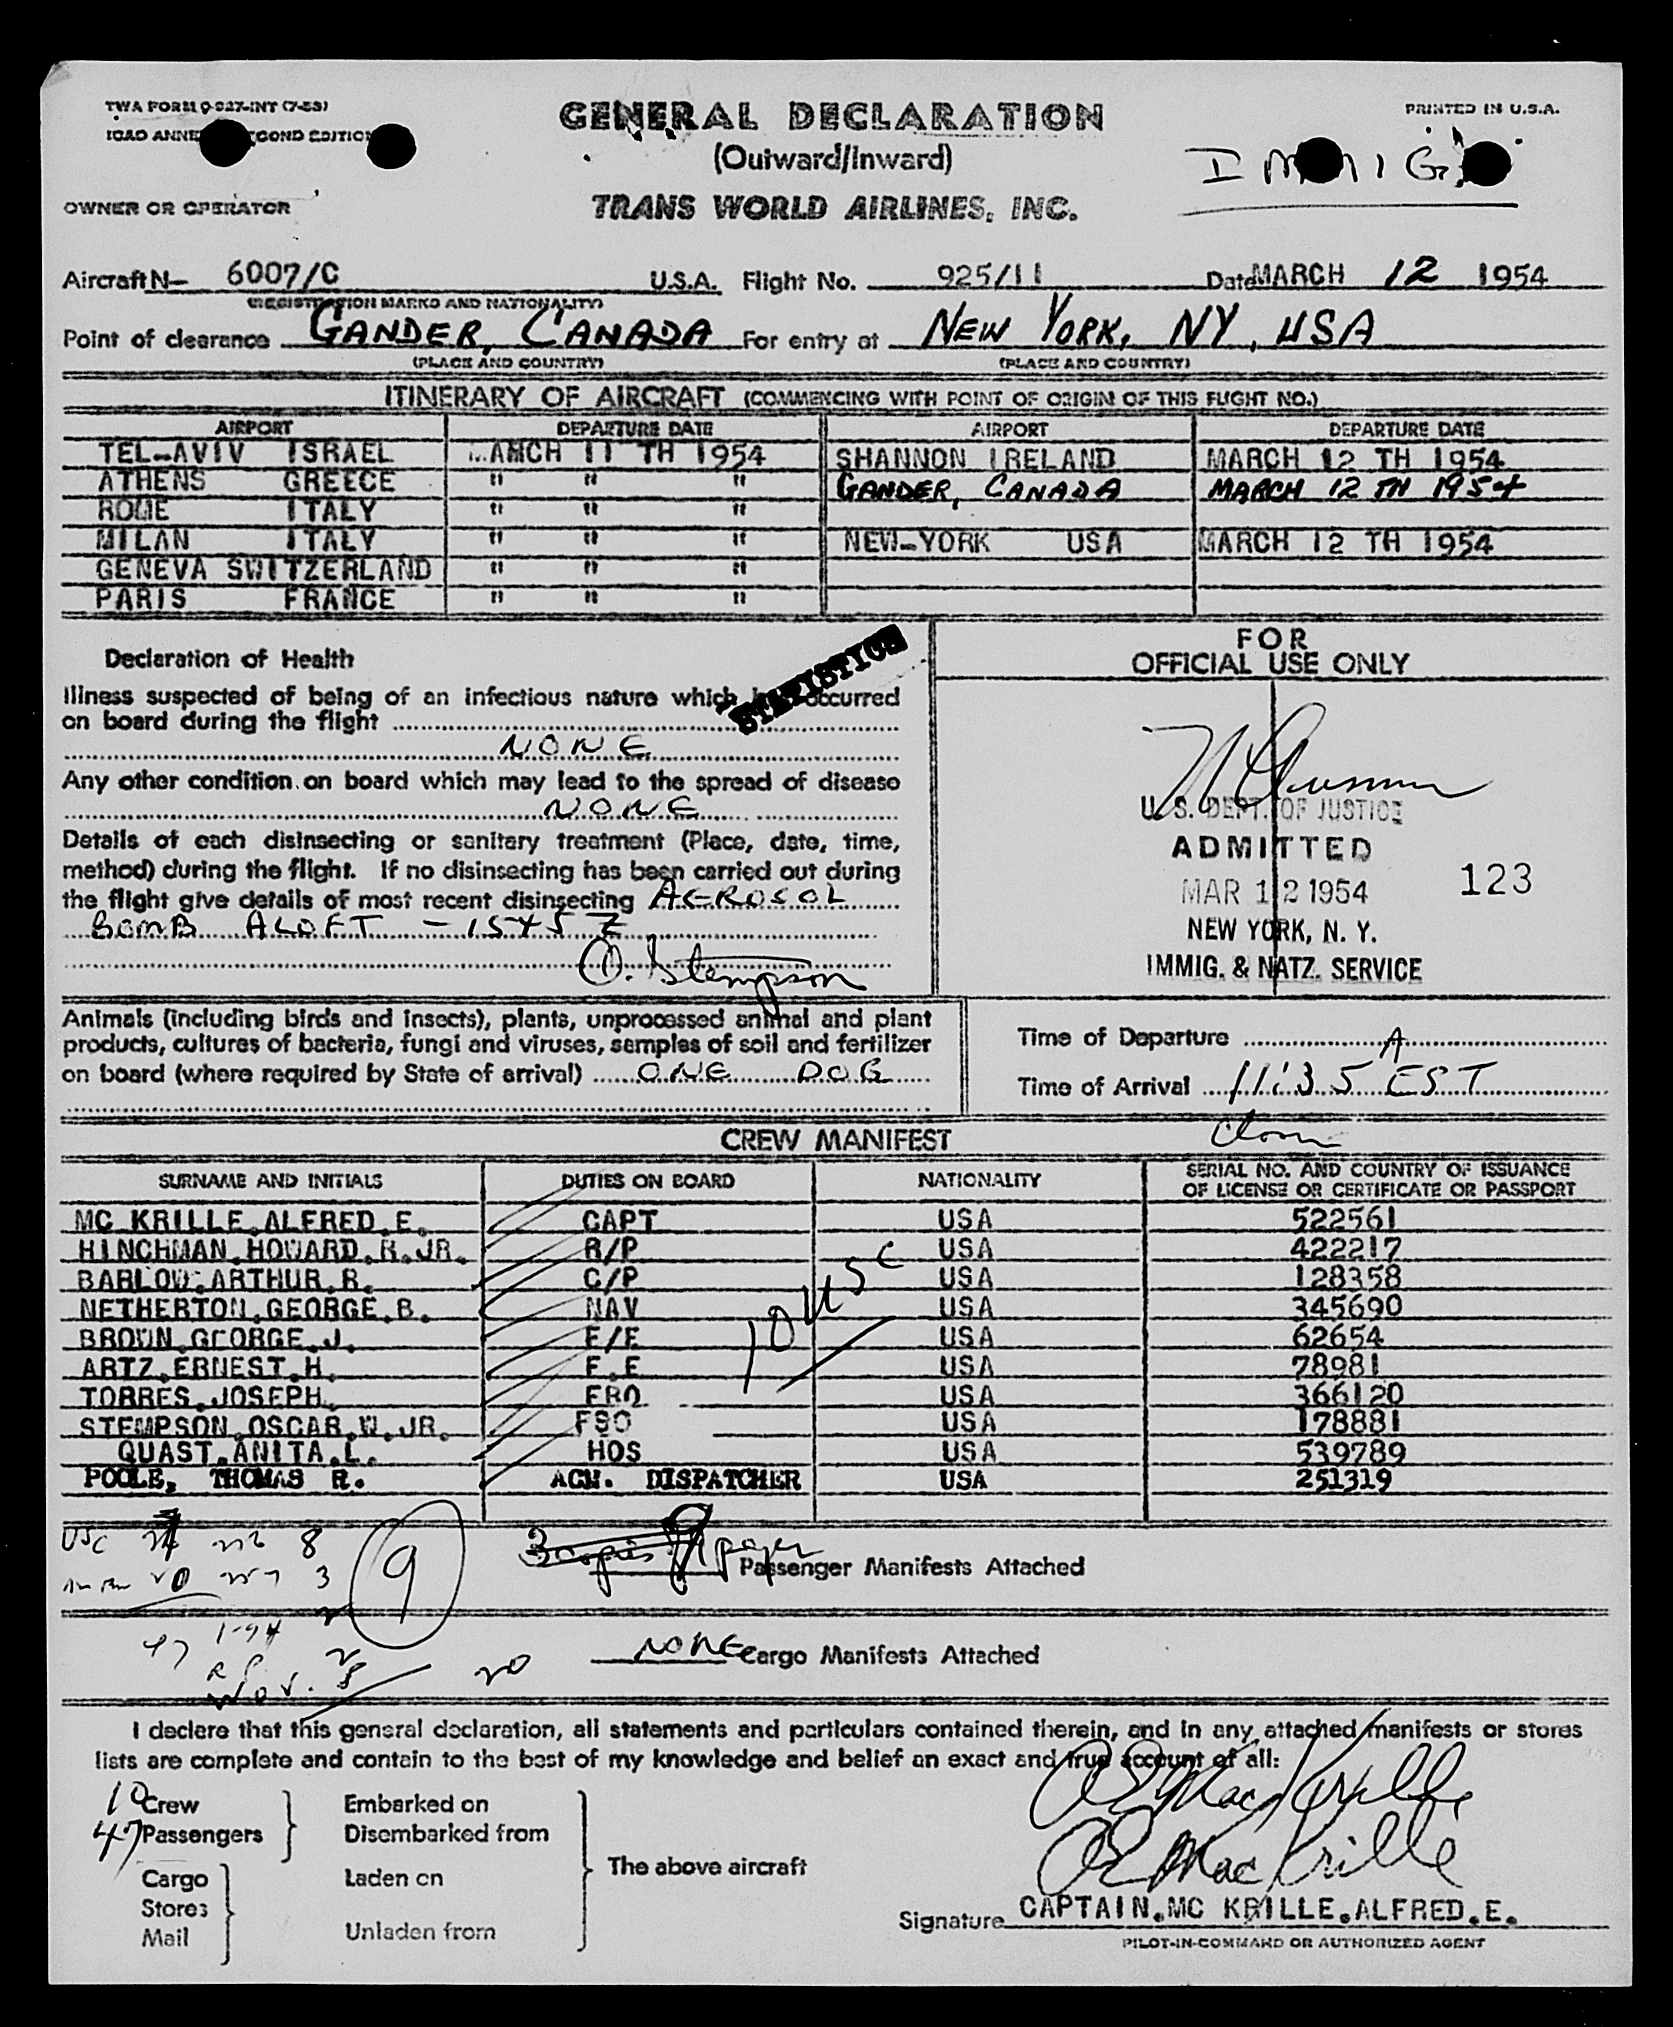 TWA FORM 0-927-INT (7-53)
GENERAL DECLARATION
PRINTED IN U.S.A.
(Outward/Inward)
OWNER OR OPERATOR
TRANS WORLD AIRLINES, INC.
Aircraft N- 6007/C U.S.A. Flight No. 925/11 Date MARCH 12 1954
(REGISTRATION MARKS AND NATIONALITY)
Point of clearance GANDER, CANADA For entry at NEW YORK, NY, USA
(PLACE AND COUNTRY) (PLACE AND COUNTRY)
ITINERARY OF AIRCRAFT (COMMENCING WITH POINT OF ORIGIN OF THIS FLIGHT NO.)
AIRPORT DEPARTURE DATE AIRPORT DEPARTURE DATE
TEL-AVIV ISRAEL MARCH 11 TH 1954 SHANNON IRELAND MARCH 12 TH 1954
ATHENS GREECE " " " GANDER, CANADA MARCH 12 TH 1954
ROME ITALY " " "
MILAN ITALY " " " NEW-YORK USA MARCH 12 TH 1954
GENEVA SWITZERLAND " " "
PARIS FRANCE " " "
FOR
OFFICIAL USE ONLY
Declaration of Health
STATISTICS
Illness suspected of being of an infectious nature which has occurred
on board during the flight
NONE
Any other condition on board which may lead to the spread of disease
NONE
Details of each disinsecting or sanitary treatment (Place, date, time,
method) during the flight. If no disinsecting has been carried out during
the flight give details of most recent disinsecting AEROSOL
BOMB ALOFT - 1545 Z
O. Stempson
U.S. DEPT. OF JUSTICE
ADMITTED
MAR 12 1954 123
NEW YORK, N. Y.
IMMIG. & NATZ. SERVICE
Animals (including birds and insects), plants, unprocessed animal and plant
products, cultures of bacteria, fungi and viruses, samples of soil and fertilizer
on board (where required by State of arrival) ONE DOG
Time of Departure
Time of Arrival 11:35 A EST
CREW MANIFEST
SURNAME AND INITIALS DUTIES ON BOARD NATIONALITY SERIAL NO. AND COUNTRY OF ISSUANCE
OF LICENSE OR CERTIFICATE OR PASSPORT
MC KRILLE.ALFRED.E. CAPT USA 522561
HINCHMAN.HOWARD.R.JR. R/P USA 422217
BARLOW.ARTHUR.R. C/P USA 128358
NETHERTON.GEORGE.B. NAV USA 345690
BROWN.GEORGE.J. F/E USA 62654
ARTZ.ERNEST.H. F.E USA 78981
TORRES.JOSEPH. FRO USA 366120
STEMPSON.OSCAR.W.JR. FSO USA 178881
QUAST.ANITA.L. HOS USA 539789
POOLE, THOMAS R. ACM. DISPATCHER USA 251319
10 USC
USC 8
3
9
Passenger Manifests Attached
47 1-94
20
NONE Cargo Manifests Attached
I declare that this general declaration, all statements and particulars contained therein, and in any attached manifests or stores
lists are complete and contain to the best of my knowledge and belief an exact and true account of all:
10 Crew Embarked on
47 Passengers Disembarked from
The above aircraft
Cargo Laden on
Stores
Mail Unladen from
AE MacKrille
AE MacKrille
Signature CAPTAIN.MC KRILLE.ALFRED.E.
PILOT-IN-COMMAND OR AUTHORIZED AGENT